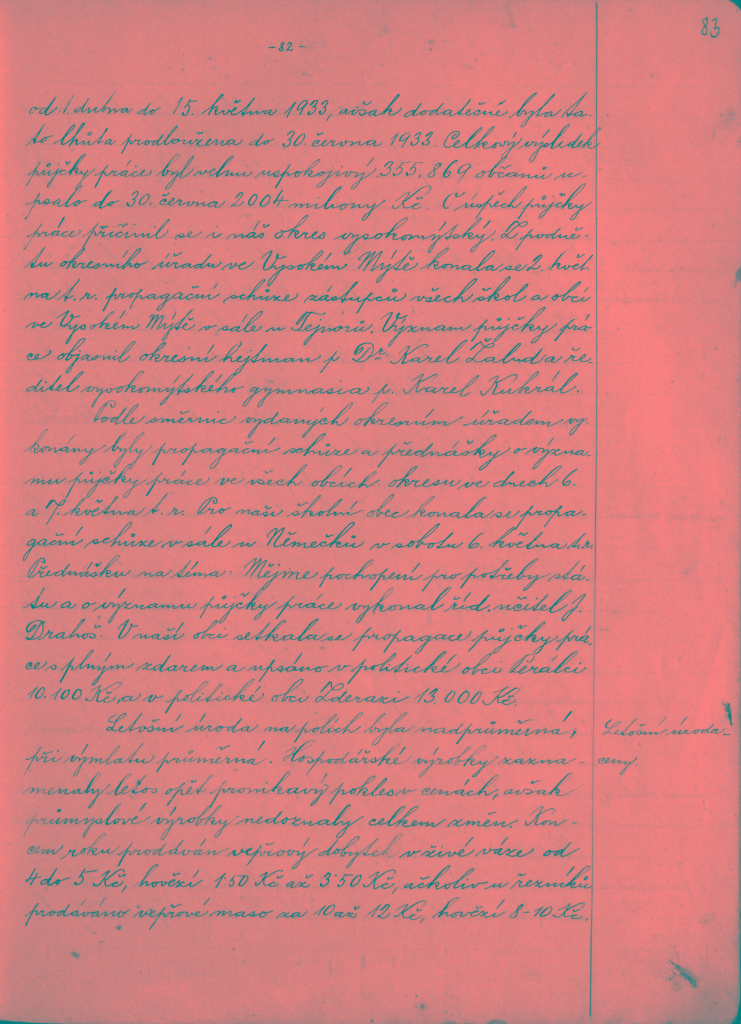 83
- 82 -
od 1. dubna do 15. května 1933, avšak dodatečně byla ta-
to lhůta prodloužena do 30. června 1933. Celkový výsledek
půjčky práce byl velmi uspokojivý. 355.869 občanů u-
psalo do 30. června 2004 miliony Kč. O úspěch půjčky
práce přičinil se i náš okres vysokomýtský. Z podně-
tu okresního úřadu ve Vysokém Mýtě konala se 2. květ-
na t. r. propagační schůze zástupců všech škol a obcí
ve Vysokém Mýtě v sále u Tejnorů. Význam půjčky prá-
ce objasnil okresní hejtman p. Dr. Karel Žalud a ře-
ditel vysokomýtského gymnasia p. Karel Kukrál.
Podle směrnic vydaných okresním úřadem vy-
konány byly propagační schůze a přednášky o význa-
mu půjčky práce ve všech obcích okresu, ve dnech 6.
a 7. května t. r. Pro naši školní obec konala se propa-
gační schůze v sále u Němečků v sobotu 6. května t. r.
Přednášku na téma: Mějme pochopení pro potřeby stá-
tu a o významu půjčky práce vykonal říd. učitel J.
Drahoš. V naší obci setkala se propagace půjčky prá-
ce s plným zdarem a upsáno v politické obci Perálci
10.100 Kč, a v politické obci Zderazi 13.000 Kč.
Letošní úroda na polích byla nadprůměrná,
při výmlatu průměrná. Hospodářské výrobky zazna-
menaly letos opět pronikavý pokles v cenách, avšak
průmyslové výrobky nedoznaly celkem změn. Kon-
cem roku prodáván vepřový dobytek v živé váze od
4 do 5 Kč, hovězí 1·50 Kč až 3·50 Kč, ačkoliv u řezníků
prodáváno vepřové maso za 10 až 12 Kč, hovězí 8-10 Kč.
Letošní úroda-
ceny.